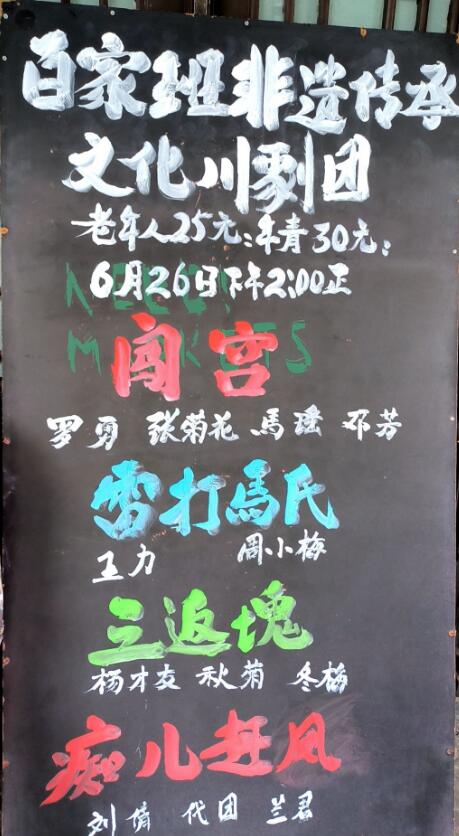 百家班非遗传承
文化川剧团
老年人25元:年青30元:
6月26日下午2:00正
闯宫
罗勇 张菊花 馬瑶 邓芳
雷打馬氏
王力 周小梅
三返塊
杨才友 秋菊 冬梅
痴儿赶凤
刘倩 代团 兰君